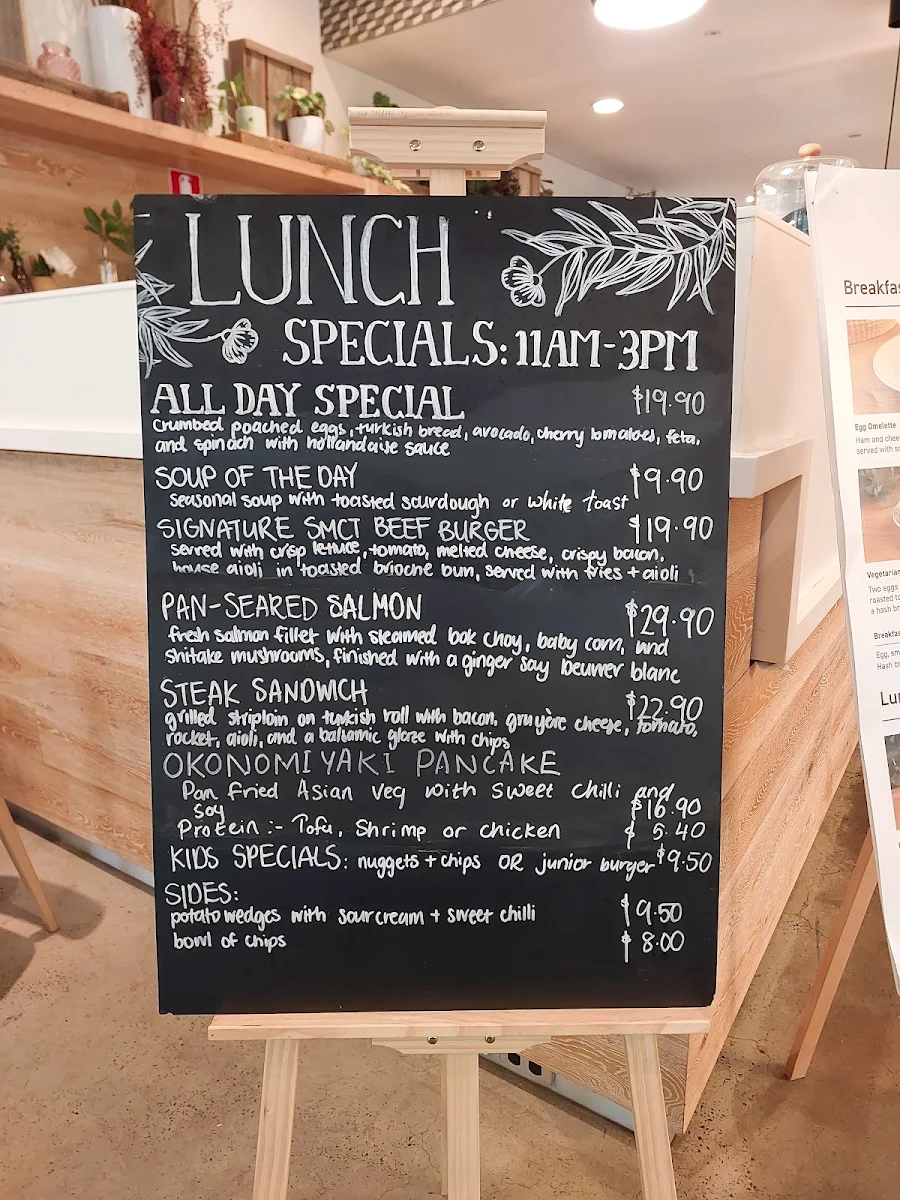 LUNCH
SPECIALS: 11AM-3PM
ALL DAY SPECIAL $19.90
crumbed poached eggs, turkish bread, avocado, cherry tomatoes, feta,
and spinach with hollandaise sauce
SOUP OF THE DAY $9.90
seasonal soup with toasted sourdough or white toast
SIGNATURE SMCT BEEF BURGER $19.90
served with crisp lettuce, tomato, melted cheese, crispy bacon,
house aioli in toasted brioche bun, served with fries + aioli
PAN-SEARED SALMON $29.90
fresh salmon fillet with steamed bok choy, baby corn, and
shitake mushrooms, finished with a ginger soy beurre blanc
STEAK SANDWICH $22.90
grilled striploin on turkish roll with bacon, gruyère cheese, tomato,
rocket, aioli, and a balsamic glaze with chips
OKONOMIYAKI PANCAKE
Pan fried Asian veg with sweet chilli and
Soy $16.90
Protein :- Tofu, Shrimp or chicken $5.40
KIDS SPECIALS: nuggets + chips OR junior burger $9.50
SIDES:
potato wedges with sour cream + sweet chilli $9.50
bowl of chips $8.00
Breakfas
Egg Omelette
Ham and chee
served with so
Vegetarian
Two eggs
roasted to
a hash br
Breakfas
Egg, sm
Hash bo
Lu